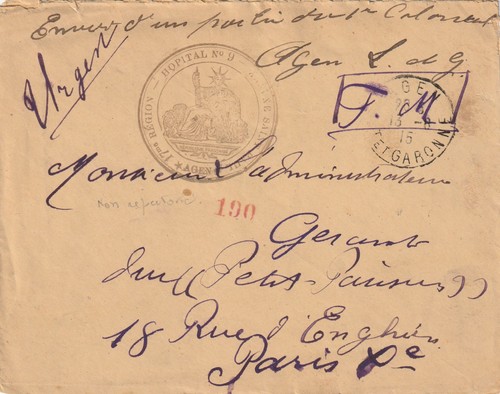 Envoi d'un poilu du 1er Colonial
Agen L. & G.
Urgent
17me RÉGION — HOPITAL No 9
AGEN
F. M.
AGEN
15
LOT ET GARONNE
Monsieur l'administrateur
190
Gérant
du (( Petit-Parisien ))
18 Rue d'Enghien
Paris Xe